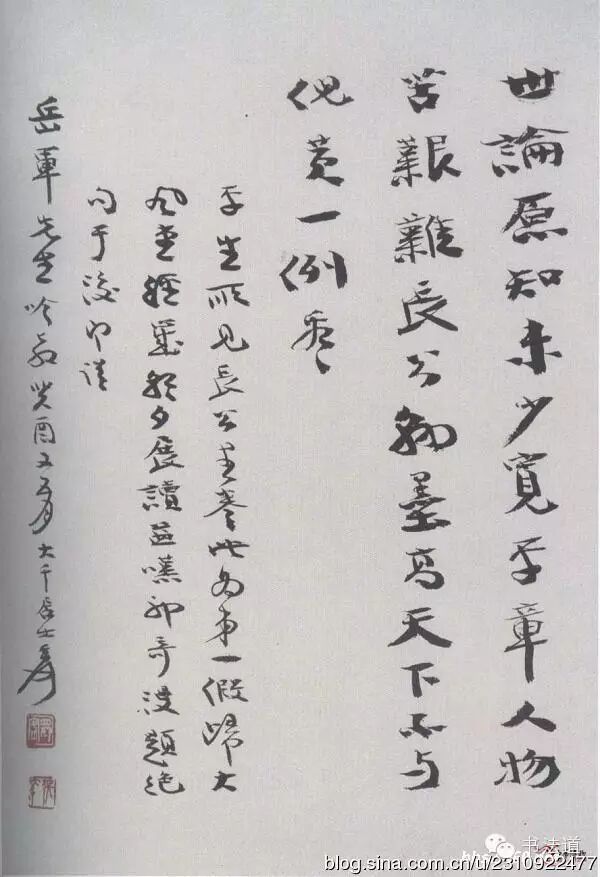 世論原知未少寬平章人物
苦艱難長公翰墨高天下不与
倪黄一例看
平生所見長公書卷此為第一假歸大
風堂經歲朝夕展讀嘆神奇漫題絕
句于後即請
岳軍先生吟教癸酉又五月大千居士爰
书法道
blog.sina.com.cn/u/2310922477